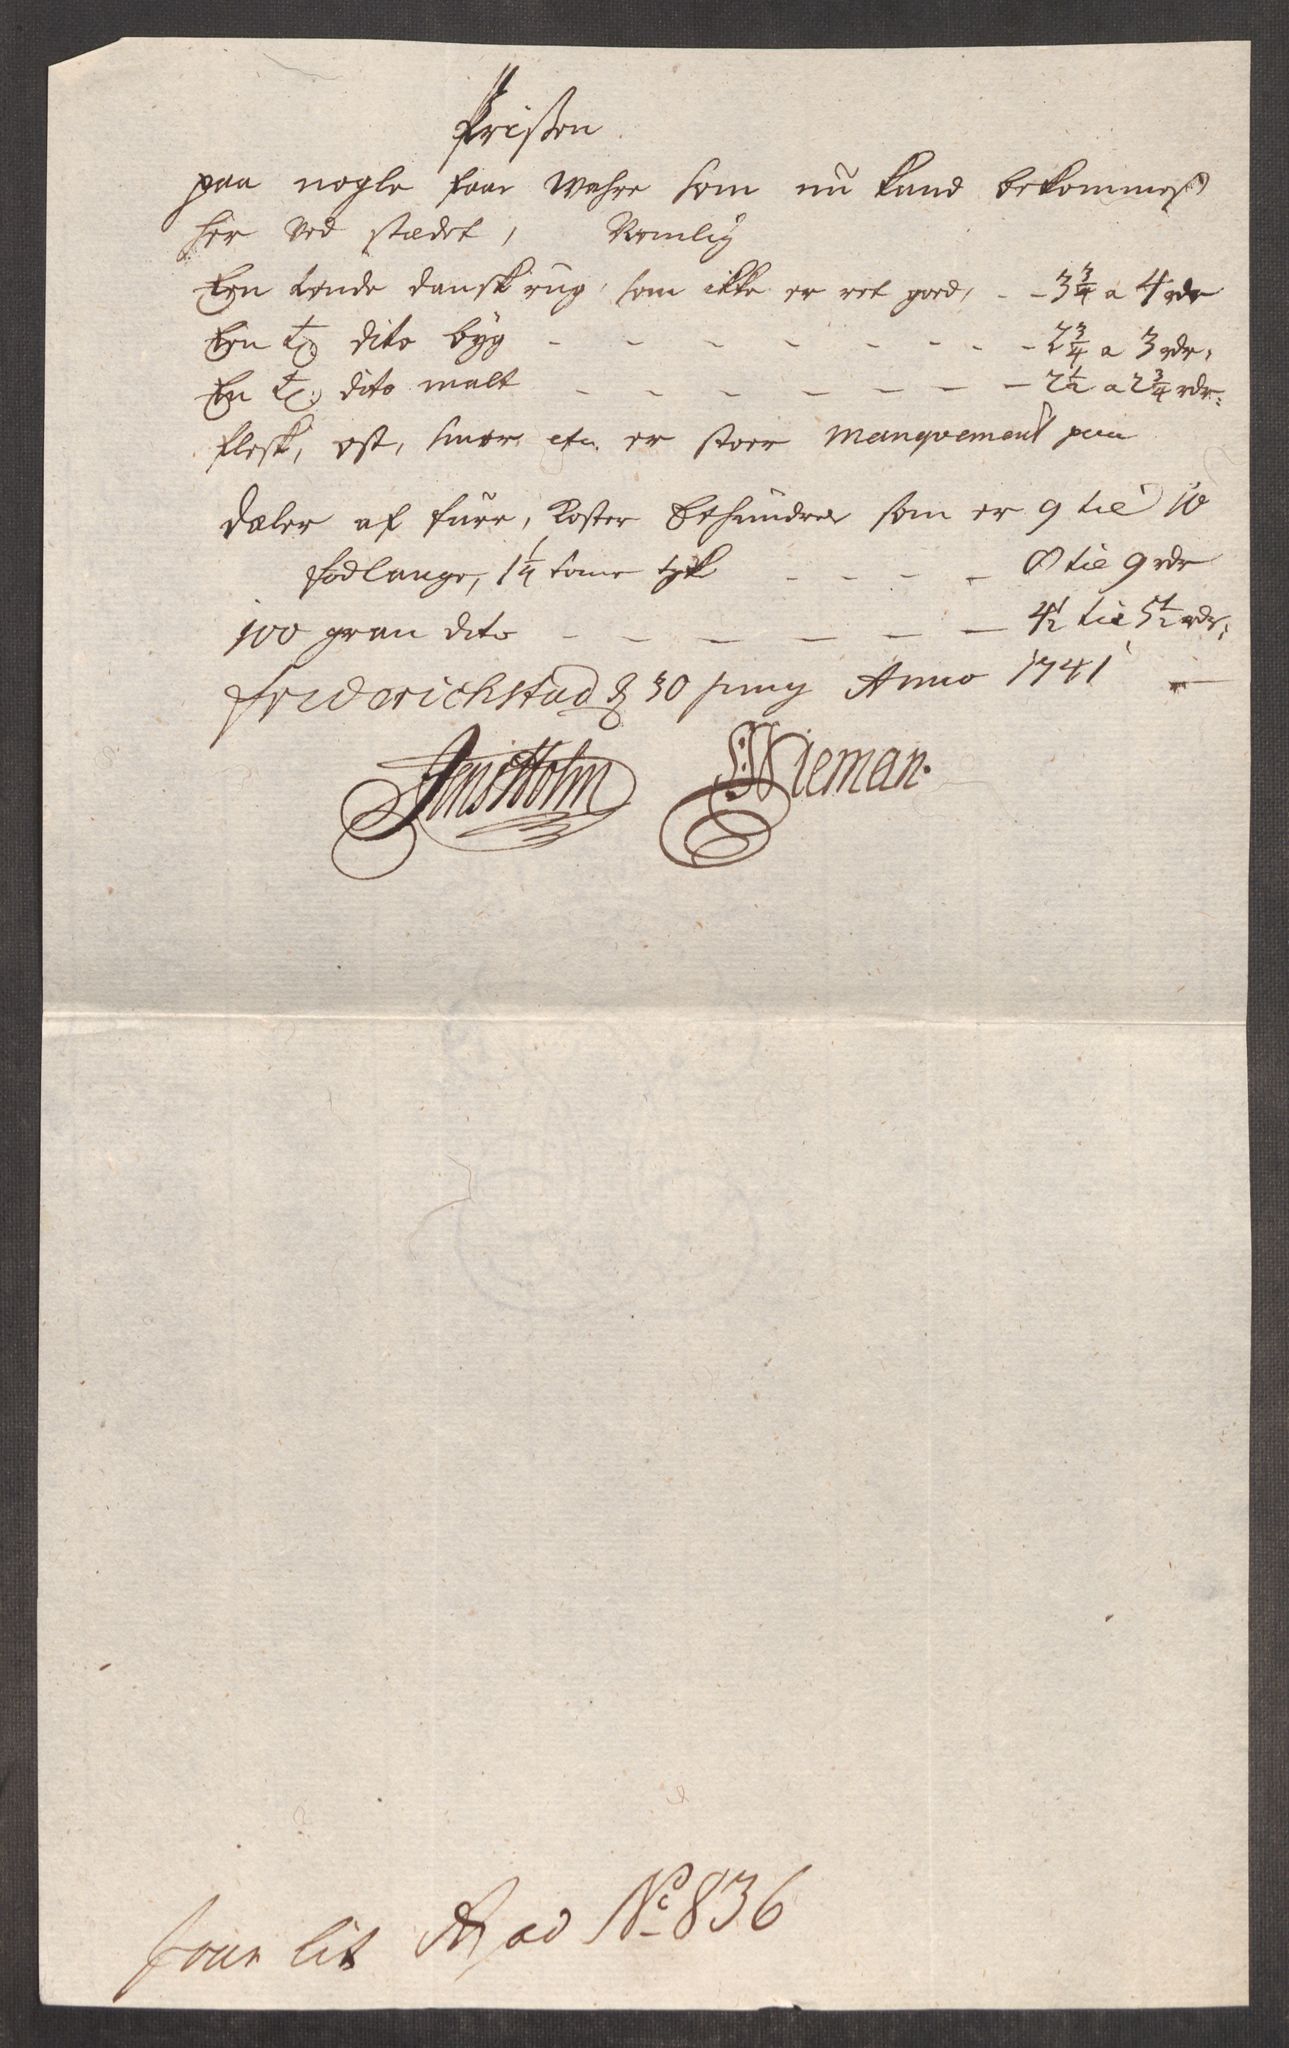 Prisen
paa nogle faae Wahre som nu kand bekommes
her ved stædet, Nemlig
Een tønde dansk rug, som ikke er ret goed, - - 3 3/4 a 4 rdr
Een tø dito byg - - - - - - - - 2 3/4 a 3 rdr:
En tø: dito malt - - - - - - - 2 1/2 a 2 3/4 rdr:
flesk, ost, smør etc. er stoer manqvement paa
Dæler af furre, Koster Et hundrede som er 9 til 10
fod lange, 1 1/4 tome tyk - - - - 8 til 9 rdr
100 gran dito - - - - - - - 4 1/2 til 5 1/2 rdr:
Friderichstad d 30 Juny Anno 1741
Jens Holm Wieman.
Jour lit R ad No 836